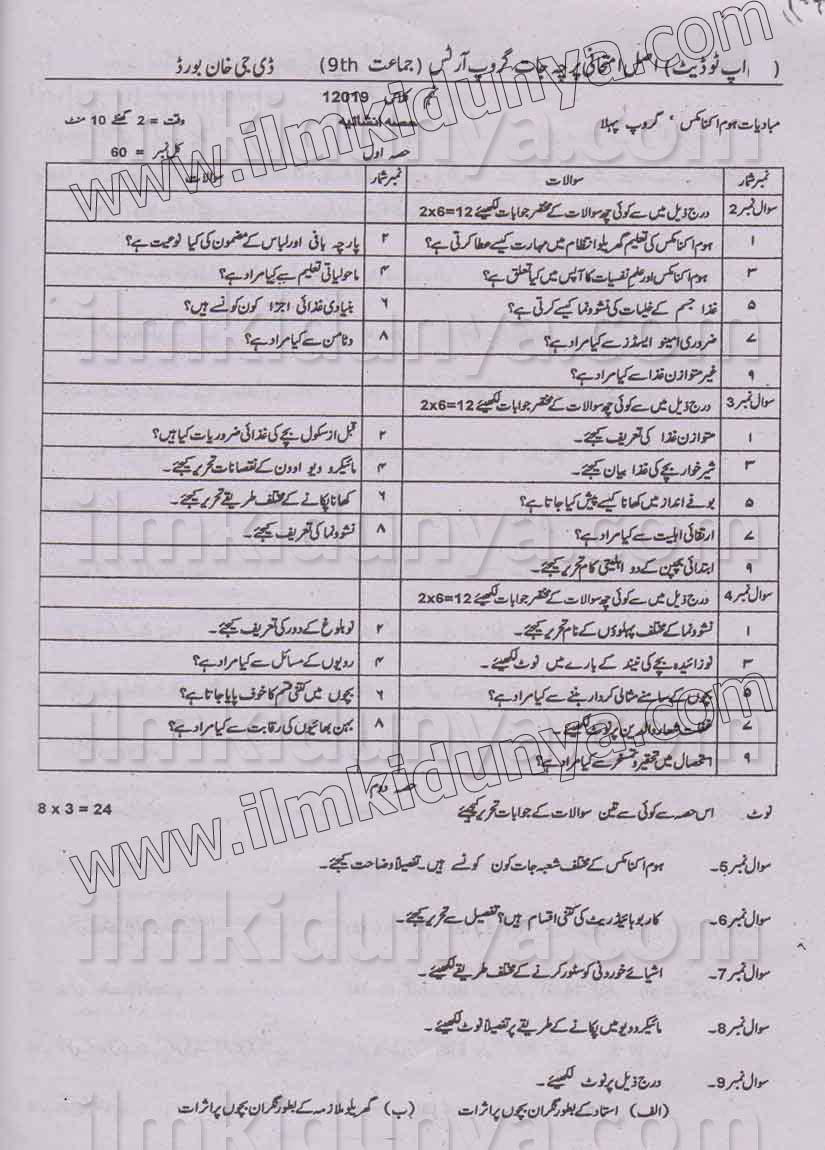 ( اپ ٹو ڈیٹ) اصل امتحانی پرچہ جات گروپ آرٹس (جماعت 9th) ڈی جی خان بورڈ
نہم کلاس 12019
مبادیات ہوم اکنامکس، گروپ پہلا حصہ انشائیہ وقت = 2 گھنٹے 10 منٹ
حصہ اول کل نمبر = 60
نمبر شمار سوالات نمبر شمار سوالات
سوال نمبر 2 درج ذیل میں سے کوئی چھ سوالات کے مختصر جوابات لکھیئے 2x6=12
۱ ہوم اکنامکس کی تعلیم گھریلو انتظام میں مہارت کیسے عطا کرتی ہے؟ ۲ پارچہ بافی اور لباس کے مضمون کی کیا نوعیت ہے؟
۳ ہوم اکنامکس اور علم نفسیات کا آپس میں کیا تعلق ہے؟ ۴ ماحولیاتی تعلیم سے کیا مراد ہے؟
۵ غذا جسم کے خلیات کی نشوونما کیسے کرتی ہے؟ ۶ بنیادی غذائی اجزا کون کونسے ہیں؟
۷ ضروری امینو ایسڈز سے کیا مراد ہے؟ ۸ وٹامن سے کیا مراد ہے؟
۹ غیر متوازن غذا سے کیا مراد ہے؟
سوال نمبر 3 درج ذیل میں سے کوئی چھ سوالات کے مختصر جوابات لکھیئے 2x6=12
۱ متوازن غذا کی تعریف کیجئے۔ ۲ قبل از سکول بچے کی غذائی ضروریات کیا ہیں؟
۳ شیر خوار بچے کی غذا بیان کیجئے۔ ۴ مائیکرو ویو اوون کے نقصانات تحریر کیجئے۔
۵ بوفے انداز میں کھانا کیسے پیش کیا جاتا ہے؟ ۶ کھانا پکانے کے مختلف طریقے تحریر کیجئے۔
۷ ارتقائی اہلیت سے کیا مراد ہے؟ ۸ نشوونما کی تعریف کیجئے۔
۹ ابتدائی بچپن کے دو اہلیتی کام تحریر کیجئے۔
سوال نمبر 4 درج ذیل میں سے کوئی چھ سوالات کے مختصر جوابات لکھیئے 2x6=12
۱ نشوونما کے مختلف پہلوؤں کے نام تحریر کیجئے۔ ۲ نوبلوغ کے دور کی تعریف کیجئے۔
۳ نوزائیدہ بچے کی نیند کے بارے میں نوٹ لکھیئے۔ ۴ رویوں کے مسائل سے کیا مراد ہے؟
۵ بچوں کے سامنے مثالی کردار بننے سے کیا مراد ہے؟ ۶ بچوں میں کتنی قسم کا خوف پایا جاتا ہے؟
۷ غفلت شعار والدین پر نوٹ لکھیئے۔ ۸ بہن بھائیوں کی رقابت سے کیا مراد ہے؟
۹ استحصال میں تحقیر و تمسخر سے کیا مراد ہے؟
حصہ دوم
نوٹ اس حصہ سے کوئی سے تین سوالات کے جوابات تحریر کیجئے 8 x 3 = 24
سوال نمبر 5۔ ہوم اکنامکس کے مختلف شعبہ جات کون کونسے ہیں۔ تفصیلاً وضاحت کیجئے۔
سوال نمبر 6۔ کاربوہائیڈریٹ کی کتنی اقسام ہیں؟ تفصیل سے تحریر کیجئے۔
سوال نمبر 7۔ اشیائے خوردنی کو سٹور کرنے کے مختلف طریقے لکھیئے۔
سوال نمبر 8۔ مائیکرو ویو میں پکانے کے طریقے پر تفصیلاً نوٹ لکھیئے۔
سوال نمبر 9۔ درج ذیل پر نوٹ لکھیئے۔
(الف) استاد کے بطور نگران بچوں پر اثرات (ب) گھریلو ملازمہ کے بطور نگران بچوں پر اثرات
www.ilmkidunya.com
www.ilmkidunya.com
ilmkidunya.com
ilmkidunya.com
ilmkidunya.com
ilmkidunya.com
ilmkidunya.com
ilmkidunya.com
ilmkidunya.com